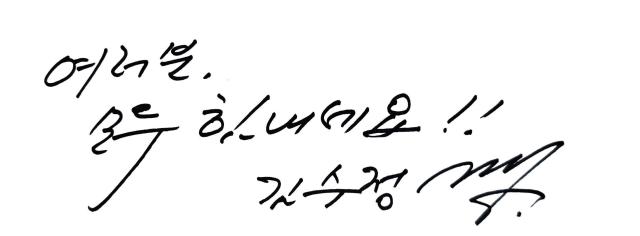 여러분.
모두 힘내세요!!
김수정